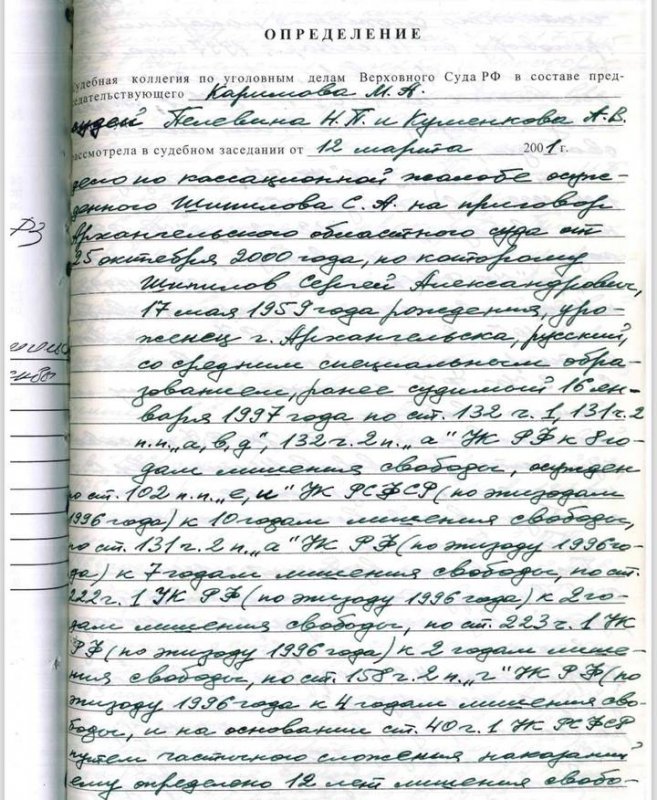 ОПРЕДЕЛЕНИЕ
Судебная коллегия по уголовным делам Верховного Суда РФ в составе пред-
седательствующего Каримова М.А.
судей Пелевина Н.П. и Куменкова А.В.
рассмотрела в судебном заседании от 12 марта 2001 г.
дело по кассационной жалобе осуж-
денного Шипилова С.А. на приговор
Архангельского областного суда от
25 октября 2000 года, по которому
Шипилов Сергей Александрович,
17 мая 1959 года рождения, уро-
женец г. Архангельска, русский,
со средним специальным обра-
зованием, ранее судимый 16 ян-
варя 1997 года по ст. 132 ч. 1, 131 ч. 2
п.п. „а, в, д", 132 ч. 2 п. „а" УК РФ к 8 го-
дам лишения свободы, осужден
по ст. 102 п.п. „е, и" УК РСФСР (по эпизодам
1996 года) к 10 годам лишения свободы,
по ст. 131 ч. 2 п. „а" УК РФ (по эпизоду 1996 го-
да) к 7 годам лишения свободы, по ст.
222 ч. 1 УК РФ (по эпизоду 1996 года) к 2 го-
дам лишения свободы, по ст. 223 ч. 1 УК
РФ (по эпизоду 1996 года) к 2 годам лише-
ния свободы, по ст. 158 ч. 2 п. „г" УК РФ (по
эпизоду 1996 года к 4 годам лишения сво-
боды, и на основании ст. 40 ч. 1 УК РСФСР
путем частичного сложения наказаний
ему определено 12 лет лишения свобо-